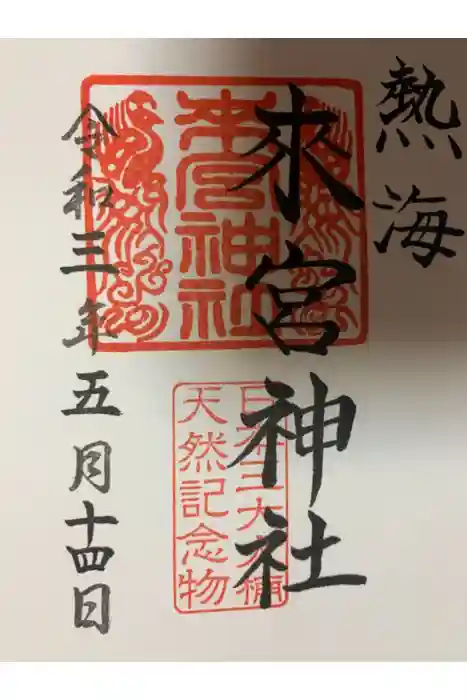 熱海
來宮神社
令和三年五月十四日
来宮神社
日本三大大楠
天然記念物